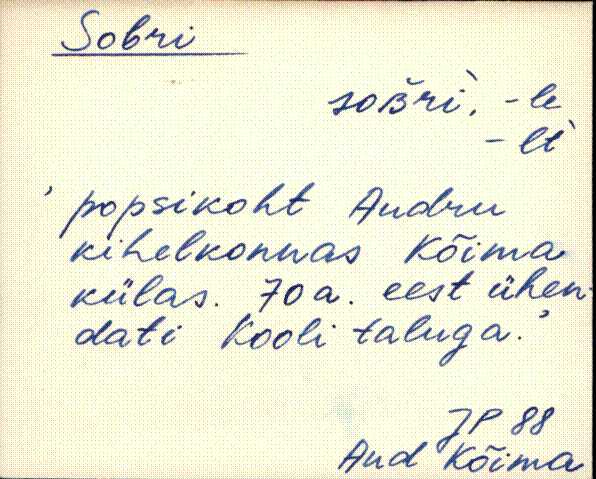 Sobri
soʙ̆rì, -le
-lt
' popsikoht Audru
kihelkonnas Kõima
külas. 70 a. eest ühen-
dati Kooli taluga.'
JP 88
Aud Kõima